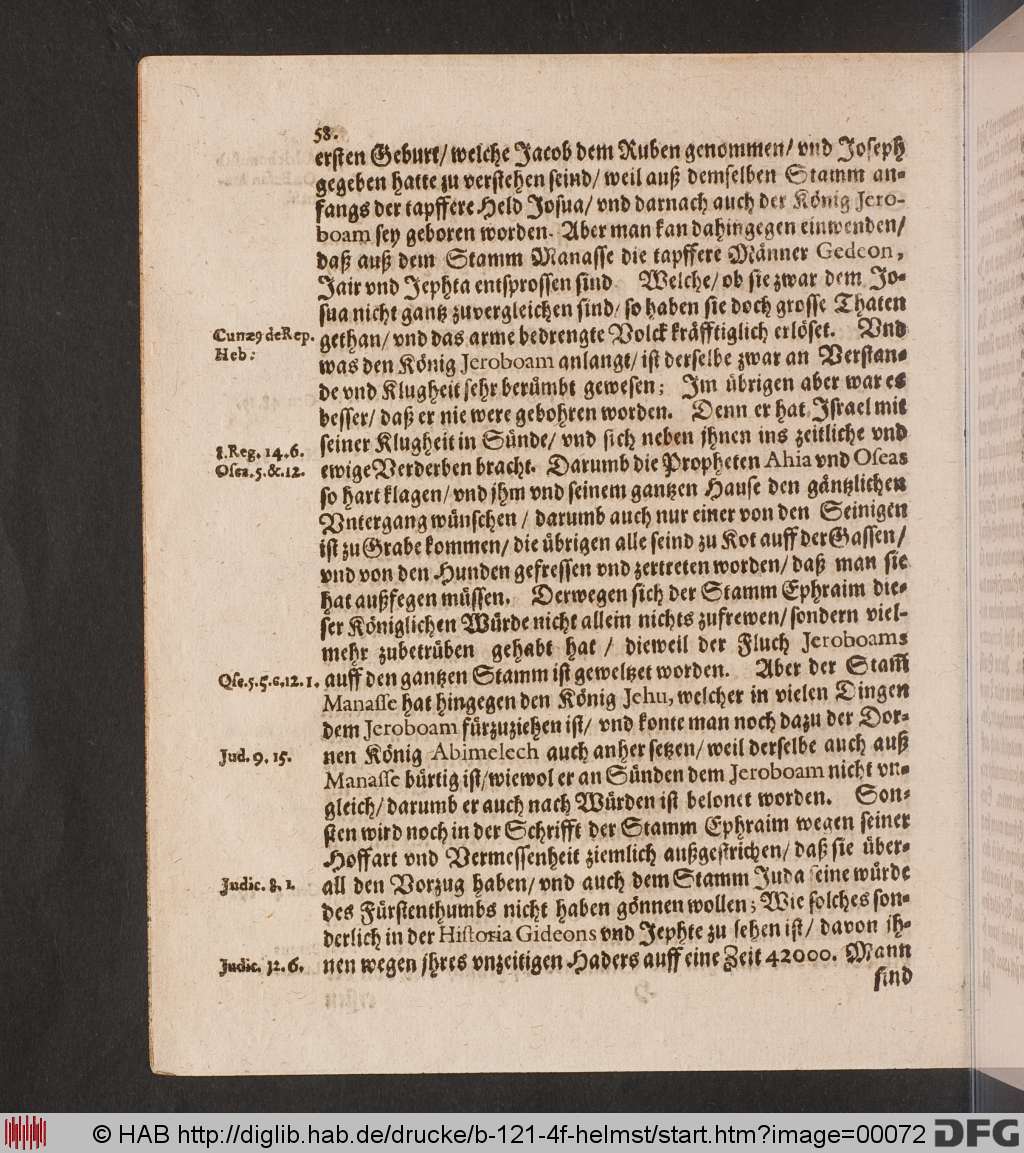 58.
ersten Geburt/ welche Jacob dem Ruben genommen/ vnd Joseph
gegeben hatte zu verstehen seind/ weil auß demselben Stamm an-
fangs der tapffere Held Josua/ vnd darnach auch der König Jero-
boam sey geboren worden. Aber man kan dahingegen einwenden/
daß auß dem Stamm Manasse die tapffere Männer Gedeon,
Jair vnd Jephta entsprossen sind Welche/ ob sie zwar dem Jo-
sua nicht gantz zuvergleichen sind/ so haben sie doch grosse Thaten
Cunæ9 de Rep.
Heb:
gethan/ vnd das arme bedrengte Volck kräfftiglich erlöset. Vnd
was den König Jeroboam anlangt/ ist derselbe zwar an Verstan-
de vnd Klugheit sehr berümbt gewesen; Im übrigen aber war es
besser/ daß er nie were gebohren worden. Denn er hat Israel mit
seiner Klugheit in Sünde/ vnd sich neben jhnen ins zeitliche vnd
1. Reg. 14. 6.
Osea. 5. &. 12.
ewige Verderben bracht. Darumb die Propheten Ahia vnd Oseas
so hart klagen/ vnd jhm vnd seinem gantzen Hause den gäntzlichen
Vntergang wünschen / darumb auch nur einer von den Seinigen
ist zu Grabe kommen/ die übrigen alle seind zu Kot auff der Gassen/
vnd von den Hunden gefressen vnd zertreten worden/ daß man sie
hat außfegen müssen. Derwegen sich der Stamm Ephraim die-
ser Königlichen Würde nicht allein nichts zufrewen/ sondern viel-
mehr zubetrüben gehabt hat / dieweil der Fluch Jeroboams
Ose. 5. 5. 6, 12. 1.
auff den gantzen Stamm ist geweltzet worden. Aber der Stam̃
Manasse hat hingegen den König Jehu, welcher in vielen Dingen
dem Jeroboam fürzuziehen ist/ vnd konte man noch dazu der Dor-
Jud. 9. 15.
nen König Abimelech auch anher setzen/ weil derselbe auch auß
Manasse bürtig ist/ wiewol er an Sünden dem Jeroboam nicht vn-
gleich/ darumb er auch nach Würden ist belonet worden. Son-
sten wird noch in der Schrifft der Stamm Ephraim wegen seiner
Hoffart vnd Vermessenheit ziemlich außgestrichen/ daß sie über-
Judic. 8. 1.
all den Vorzug haben/ vnd auch dem Stamm Juda seine würde
des Fürstenthumbs nicht haben gönnen wollen; Wie solches son-
derlich in der Historia Gideons vnd Jephte zu sehen ist/ davon jh-
Judic. 12. 6.
nen wegen jhres vnzeitigen Haders auff eine Zeit 42000. Mann
sind
© HAB http://diglib.hab.de/drucke/b-121-4f-helmst/start.htm?image=00072 DFG